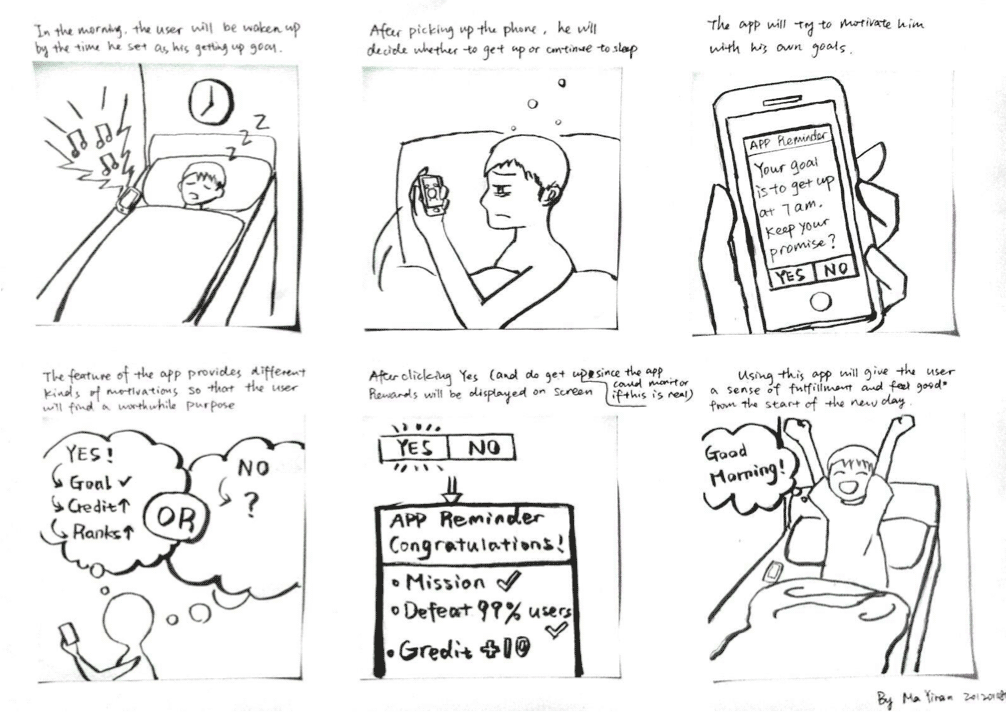 In the morning, the user will be waken up
by the time he set as his getting up goal.
z z z
After picking up the phone, he will
decide whether to get up or continue to sleep
The app will try to motivate him
with his own goals.
APP Reminder
Your goal
is to get up
at 7am.
Keep your
promise?
YES NO
The feature of the app provides different
kinds of motivations so that the user
will find a worthwhile purpose
YES!
Goal ✓
Credit↑
Ranks↑
OR
NO
?
After clicking Yes (and do get up since the app
could monitor
if this is real)
Rewards will be displayed on screen
YES NO
APP Reminder
Congratulations!
• Mission ✓
• Defeat 99% users ✓
• Gredit +10
Using this app will give the user
a sense of fulfillment and feel good
from the start of the new day.
Good
Morning!
By Ma Yiran